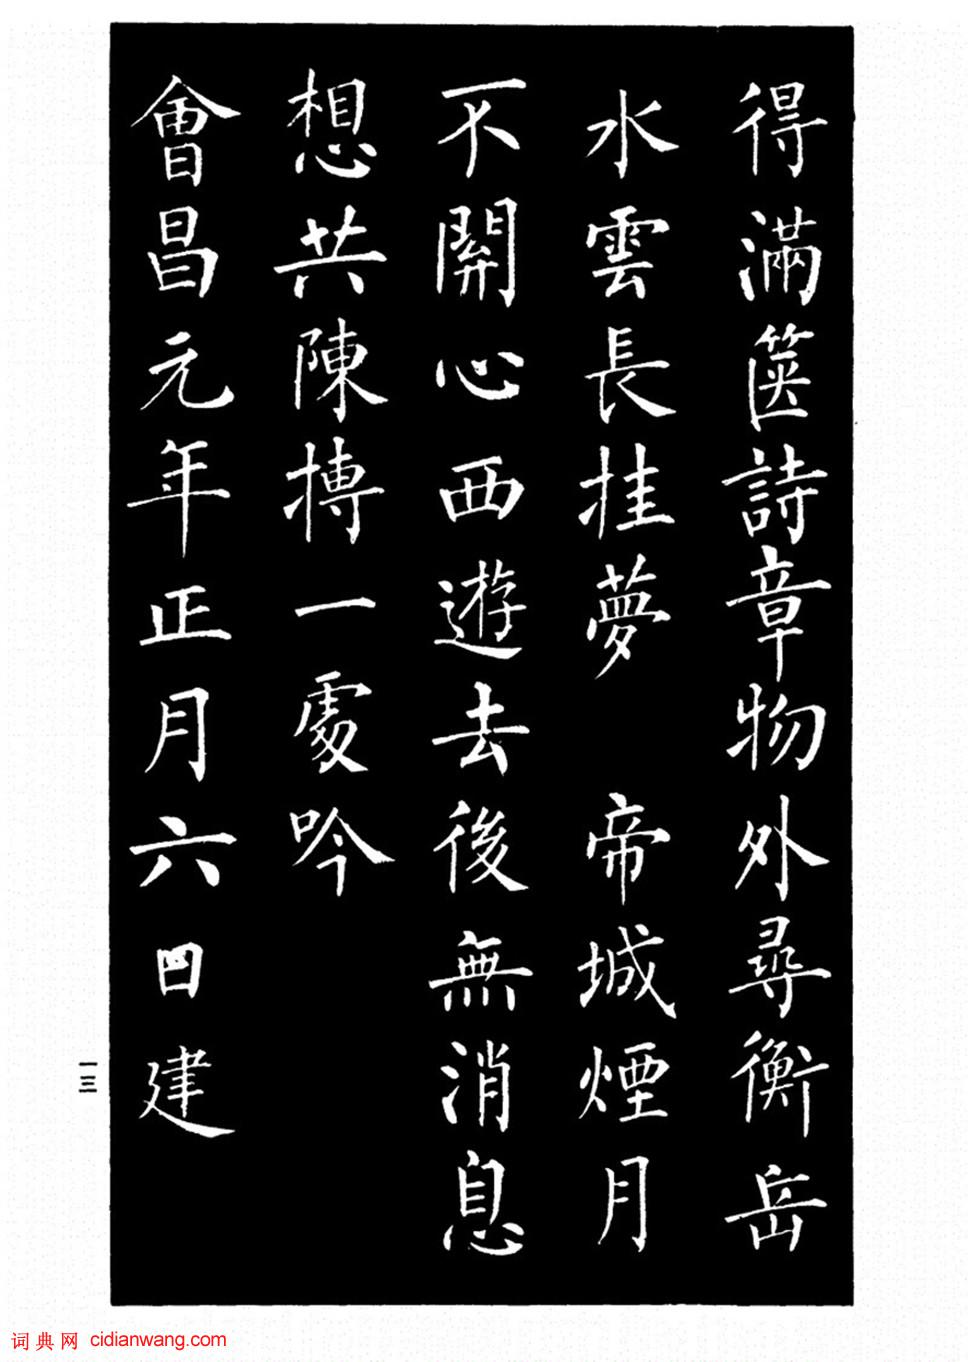 得滿篋詩章物外尋衡岳
水雲長挂夢 帝城煙月
不關心西遊去後無消息
想共陳摶一處吟
會昌元年正月六日建
一三
词典网 cidianwang.com